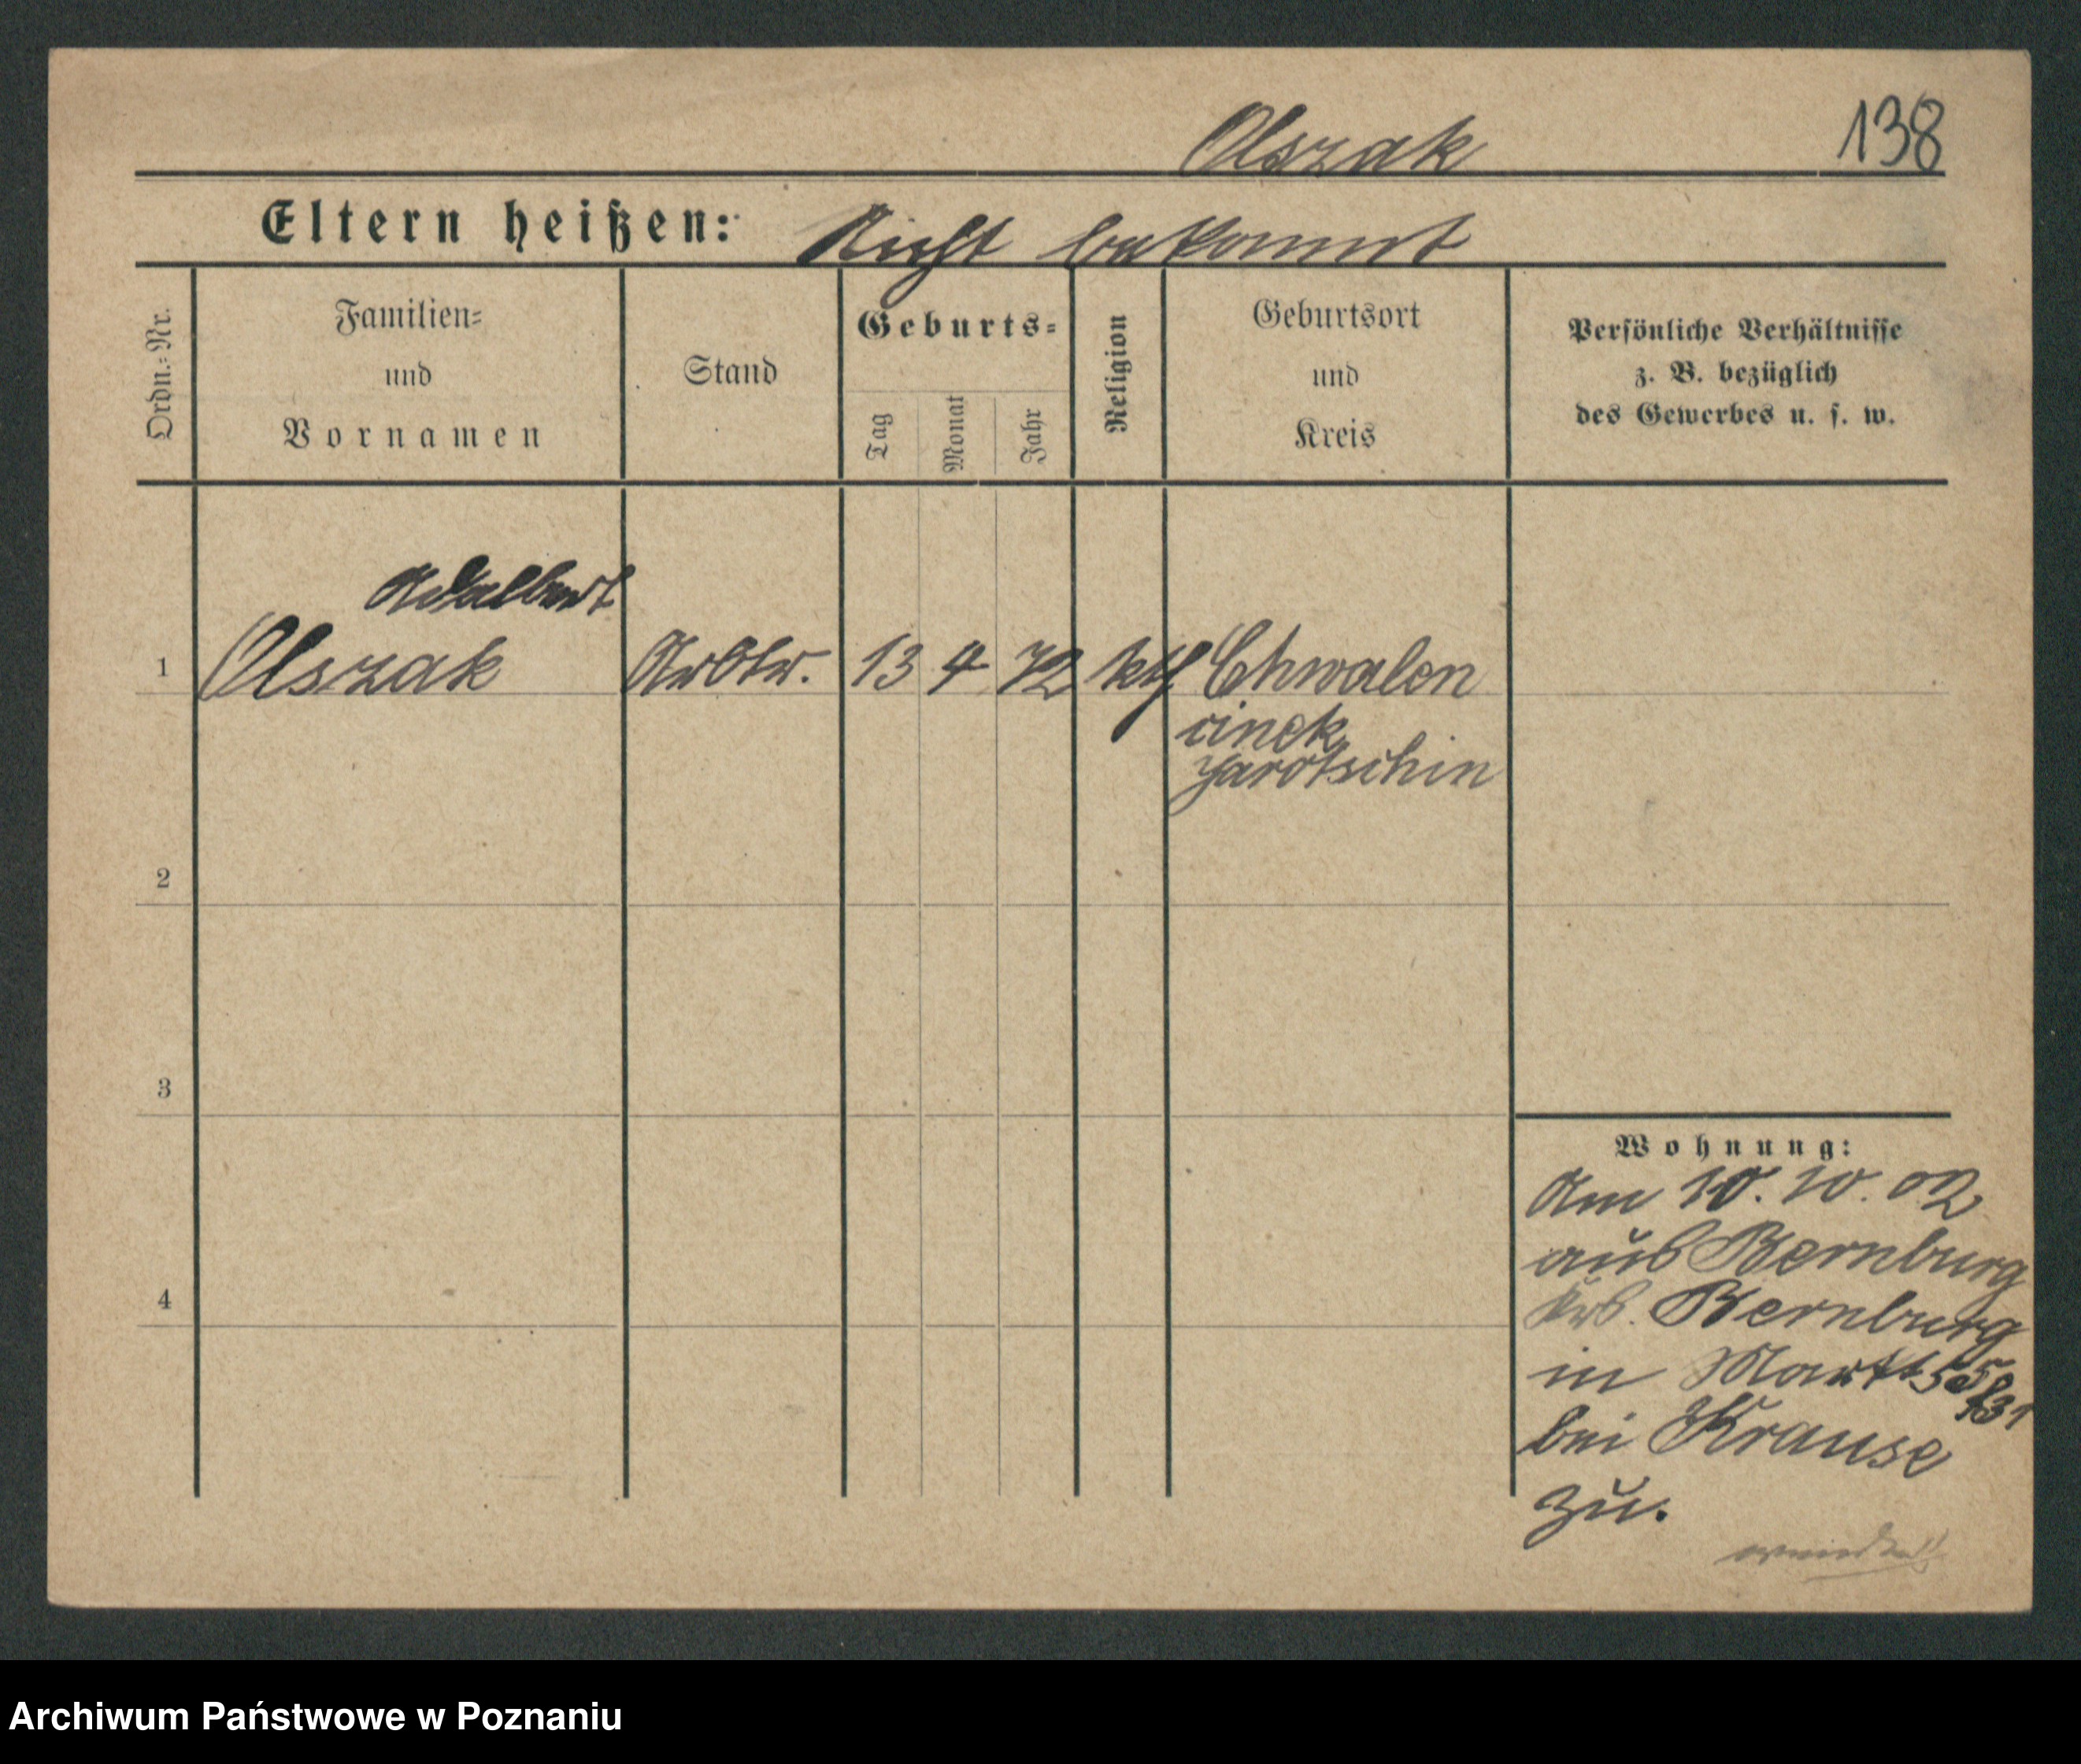 Olszak 138
Eltern heißen: Nicht bekannt
Ordn.=Nr.
Familien=
und
Vornamen
Stand
Geburts=
Tag
Monat
Jahr
Religion
Geburtsort
und
Kreis
Persönliche Verhältnisse
z. B. bezüglich
des Gewerbes u. s. w.
Adalbert
1 Olszak Arbtr. 13 4 72 kth Chwalen
cinek
Jarotschin
2
3
4
Wohnung:
Am 10. 10. 02
aus Bernburg
Krs. Bernburg
in Markt 55
bei Krause
zu.
wenden!!
Archiwum Państwowe w Poznaniu